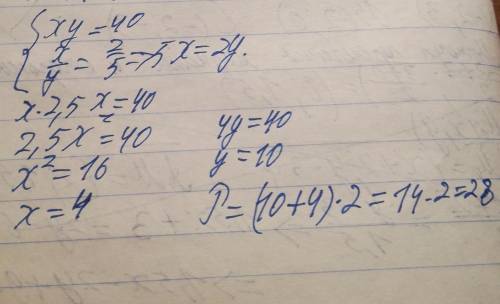 { xy = 40
x/y = 2/5 => 5x = 2y.
x · 2,5x = 40
2,5x² = 40
x² = 16
x = 4
4y = 40
y = 10
P = (10+4)·2 = 14·2 = 28